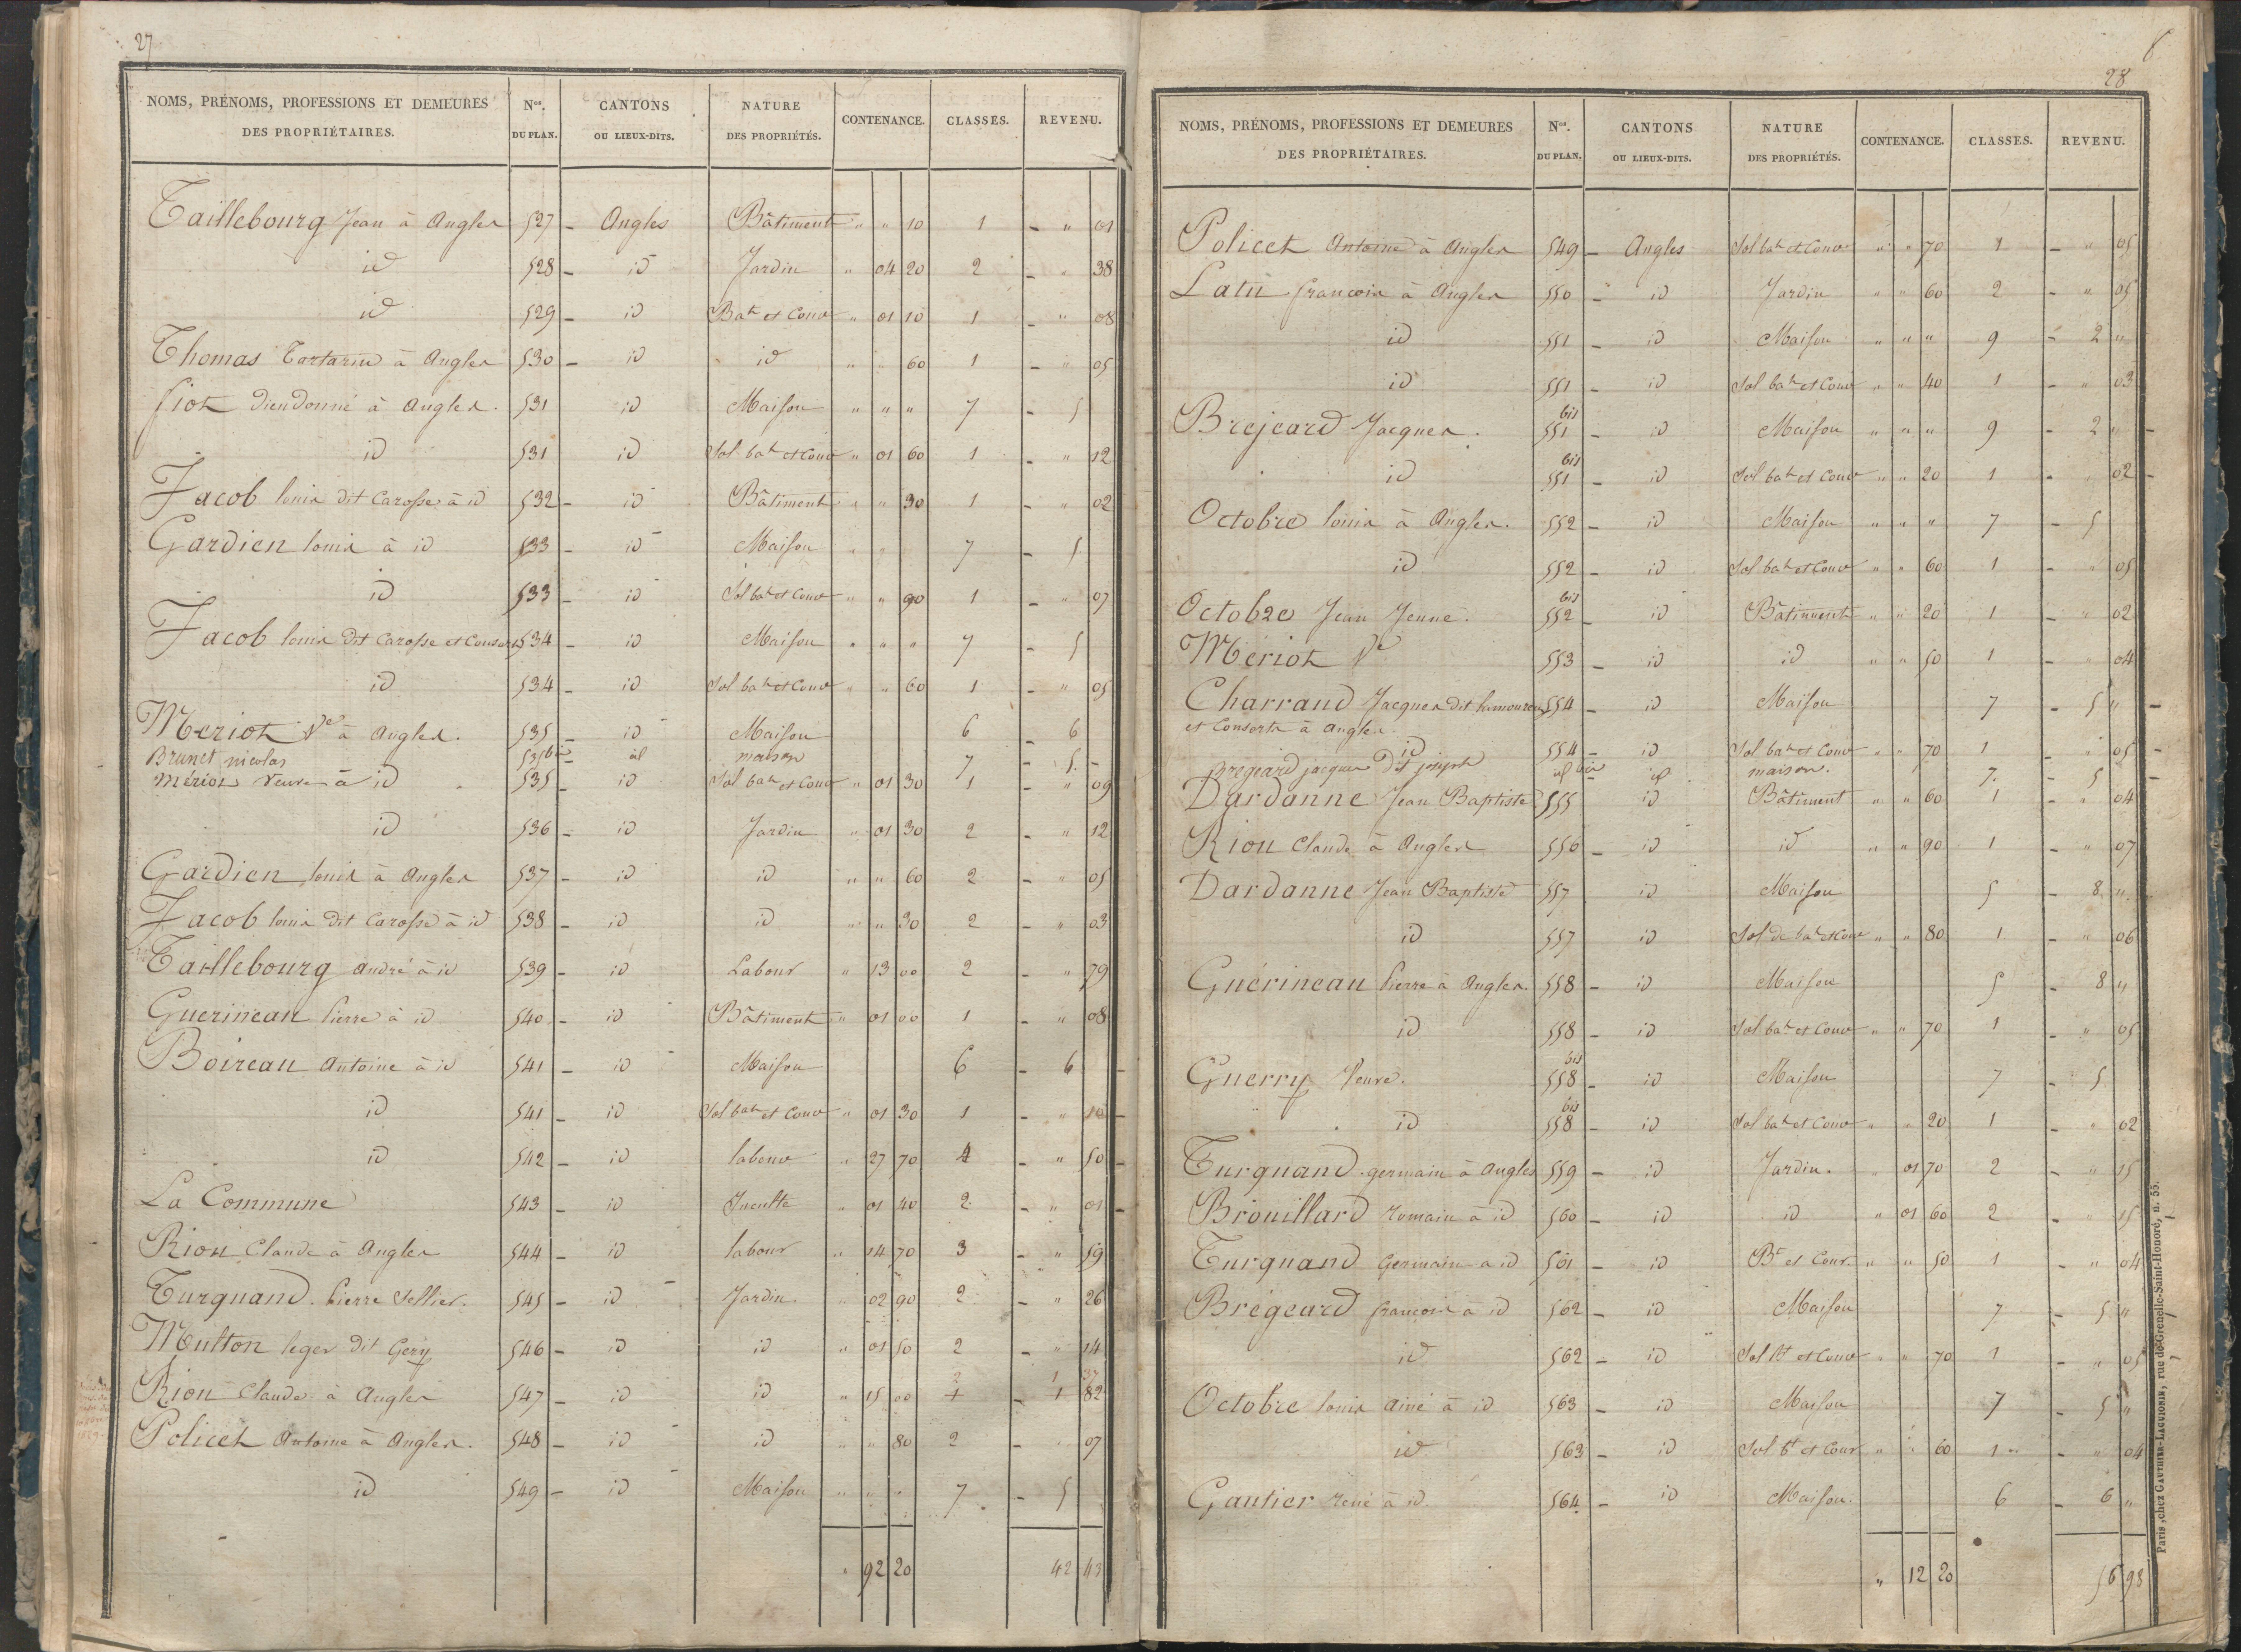 27
NOMS, PRÉNOMS, PROFESSIONS ET DEMEURES DES PROPRIÉTAIRES. Nos. DU PLAN. CANTONS OU LIEUX-DITS. NATURE DES PROPRIÉTÉS. CONTENANCE. CLASSES. REVENU.
Taillebourg Jean à Angles 527 - Angles Bâtiment " " 10 1 - " 01
id 528 - id Jardin " 04 20 2 - " 38
id 529 - id Bat et Cour " 01 10 1 - " 08
Thomas Tartarin à Angles 530 - id id " " 60 1 - " 05
fiot Dieudonné à Angles. 531 id Maison " " " 7 - 5
id 531 id Sol bat et Cour " 01 60 1 - " 12
Jacob louis dit Carosse à id 532 - id Bâtiment " " 30 1 - " 02
Gardien louis à id 533 - id Maison " " 7 - 5
id 533 - id Sol bat et Cour " " 90 1 - " 07
Jacob louis dit Carosse et Consorts 534 - id Maison " " " 7 - 5
id 534 - id Sol bat et Cour " " 60 1 - " 05
Meriot Ve à Angles. 535 - id Maison 6 - 6
Brunet nicolas 535 bis - id maison 7 - 5. -
Mériot Veuve à id 535 - id Sol bat et Cour " 01 30 1 - " 09
id 536 - id Jardin " 01 30 2 - " 12
Gardien louis à Angles 537 - id id " " 60 2 - " 05
Jacob louis dit Carosse à id 538 - id id " " 30 2 - " 03
Taillebourg andré à id 539 - id Labour " 13 00 2 - " 79
Guerineau Pierre à id 540 - id Bâtiment " 01 00 1 - " 08
Boireau Antoine à id 541 - id Maison 6 - 6 -
id 541 - id Sol bat et Cour " 01 30 1 - " 10 -
id 542 - id labour " 27 70 4 - " 50 -
La Commune 543 - id Inculte " 01 40 2 - " 01 -
Rion Claude à Angles 544 - id labour " 14 70 3 - " 59
Turquand Pierre Sellier. 545 - id Jardin " 02 90 2 - " 26
Multon leger dit Géry 546 - id id " 01 50 2 - " 14
2 1 37
Rion Claude à Angles 547 - id id " 15 00 1 - 1 82
Policet Antoine à Angles. 548 - id id " " 80 2 - " 07
id 549 - id Maison " " " 7. - 5
" 92 20 42 43
28
NOMS, PRÉNOMS, PROFESSIONS ET DEMEURES DES PROPRIÉTAIRES. Nos. DU PLAN. CANTONS OU LIEUX-DITS. NATURE DES PROPRIÉTÉS. CONTENANCE. CLASSES. REVENU.
Policet Antoine à Angles 549 - Angles Sol bat et Cour " " 70 1 - " 05
Latu françois à Angles 550 - id Jardin " " 60 2 - " 05
id 551 - id Maison " " " 9 - 2 "
id 551 - id Sol bat et Cour " " 40 1 - " 03
Brejeard Jacques. 551 bis - id Maison " " " 9 - 2 " -
id 551 bis - id Sol bat et Cour " " 20 1 - " 02 -
Octobre louis à Angles. 552 - id Maison " " " 7 - 5
id 552 - id Sol bat et Cour " " 60 1 - " 05
Octobre Jean Jeune. 552 bis - id Bâtiment " " 20 1 - " 02
Mériot Ve 553 - id id " " 50 1 - " 04
Charraud Jacques dit 554 - id Maison 7 - 5 " -
et Consorts à Angles.
id 554 - id Sol bat et Cour " " 70 1 - " 05 -
Bregeard jacques dit joseph id bis - id maison. 7. - 5 -
Dardanne Jean Baptiste 555 id Bâtiment " " 60 1 - " 04
Rion Claude à Angles 556 - id id " " 90 1 - " 07
Dardanne Jean Baptiste 557 id Maison 5 - 8 "
id 557 id Sol de bat et Cour " " 80 1 - " 06
Guérineau Pierre à Angles. 558 - id Maison 5 - 8 "
id 558 - id Sol bat et Cour " " 70 1 - " 05
Guerry Veuve. 558 bis - id Maison 7 - 5
id 558 bis - id Sol bat et Cour " " 20 1 - " 02
Turquand germain à Angles 559 - id Jardin. " 01 70 2 - " 15
Brouillard romain à id 560 - id id " 01 60 2 - " 15
Turquand Germain à id 561 - id Bt et Cour. " " 50 1 - " 04
Brégeard françois à id 562 - id Maison 7 - 5 "
id 562 - id Sol bt et Cour " " 70 1 - " 05
Octobre louis ainé à id 563 - id Maison 7 - 5 "
id 563 - id Sol bt et Cour " " 60 1 - " 04
Gautier réné à id. 564 - id Maison. 6 - 6 "
" 12 20 56 98
Paris, chez GAUTHIER-LAGUIONIE, rue de Grenelle-Saint-Honoré, n. 55.